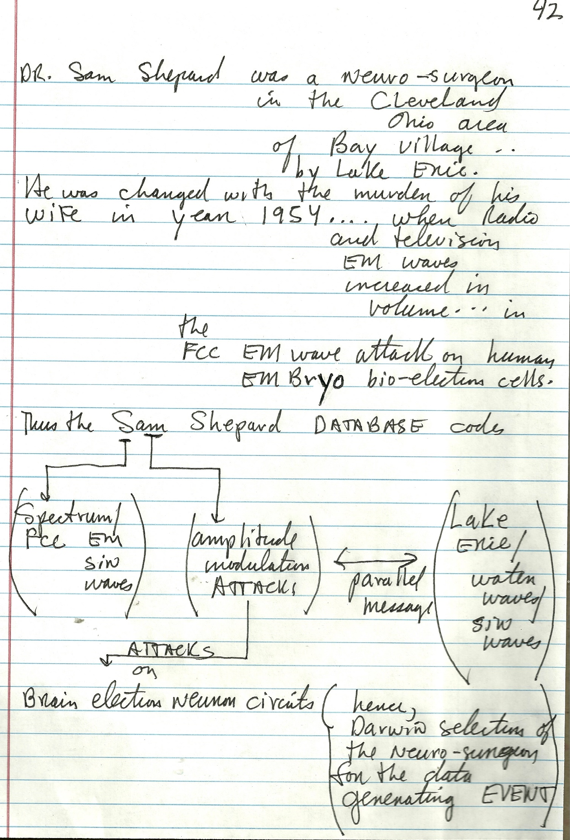 42
DR. Sam Shepard was a neuro-surgeon
in the Cleveland
Ohio area
of Bay Village ..
by Lake Erie.
He was changed with the murder of his
wife in year 1954.... when Radio
and television
EM waves
increased in
volume... in
the
FCC EM wave attack on human
EMBryo bio-electron cells.
Thus the Sam Shepard DATABASE codes
Spectrum/
FCC EM
sin
waves
amplitude
modulation
ATTACKS
parallel
message
Lake
Erie/
water
waves/
sin
waves
ATTACKS
on
Brain electron neuron circuits
hence,
Darwin selection of
the neuro-surgeon
for the data
generating EVENT